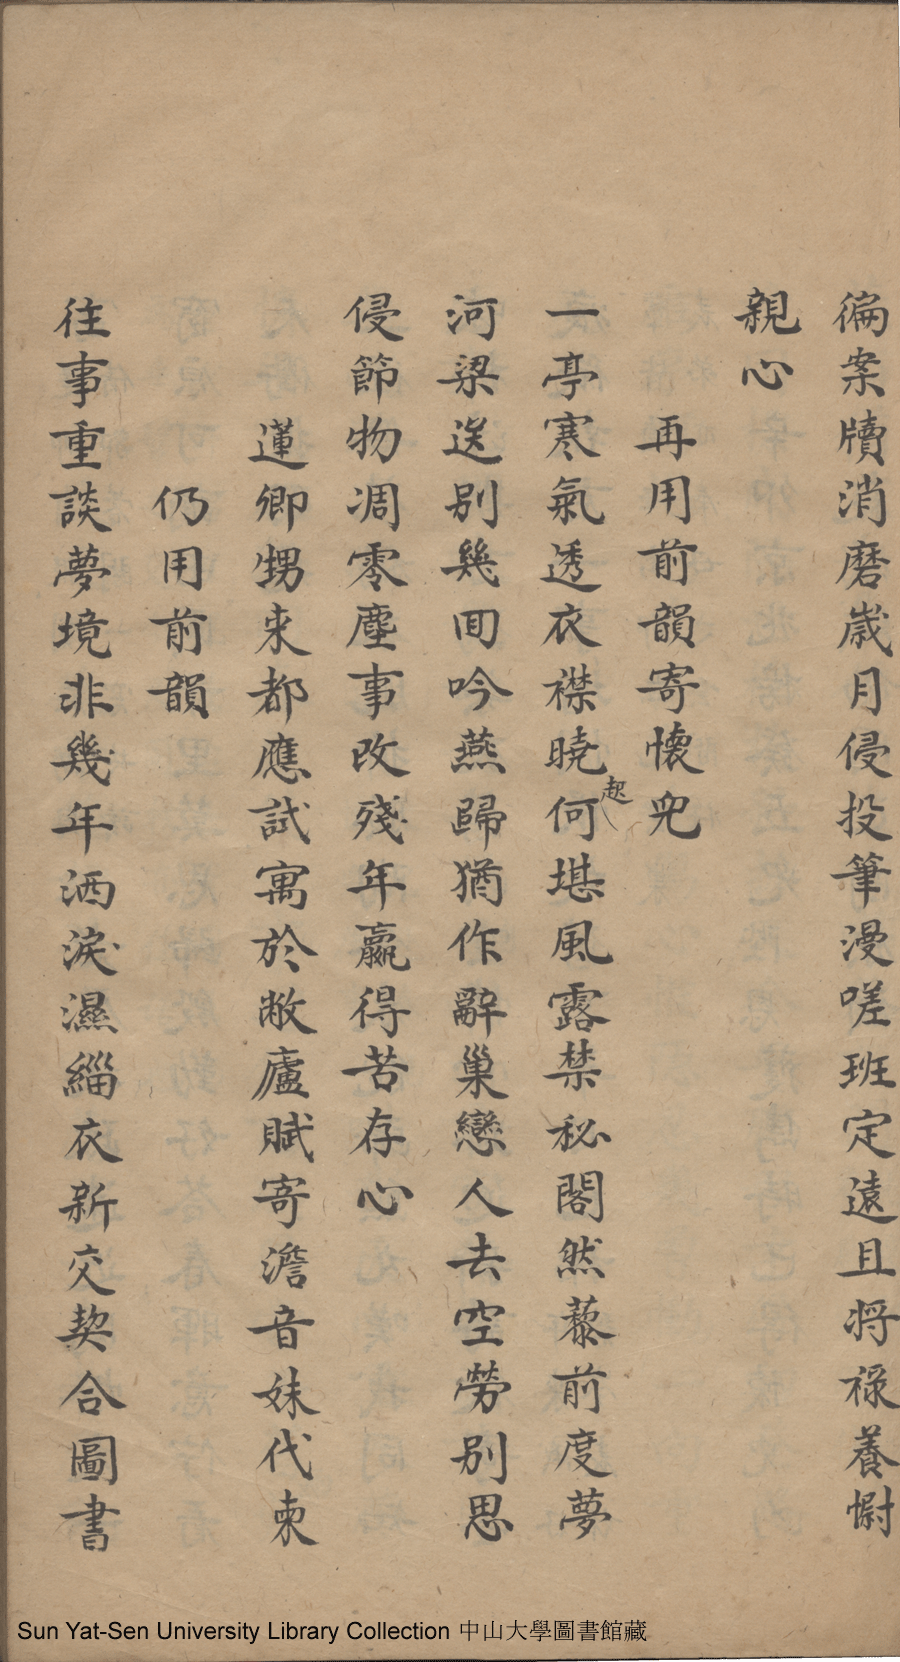 徧案牘消磨歲月侵投筆漫嗟班定遠且将祿養慰
親心
再用前韻寄懷兕
一亭寒氣透衣襟曉何堪風露禁秘閣然藜前度夢
起
河梁送别幾回吟燕歸猶作辭巢戀人去空勞别思
侵節物凋零塵事改殘年贏得苦存心
蓮卿甥来都應試寓於敝廬賦寄澹音妹代柬
仍用前韻
往事重談夢境非幾年洒淚濕緇衣新交契合圖書
Sun Yat-Sen University Library Collection 中山大學圖書館藏